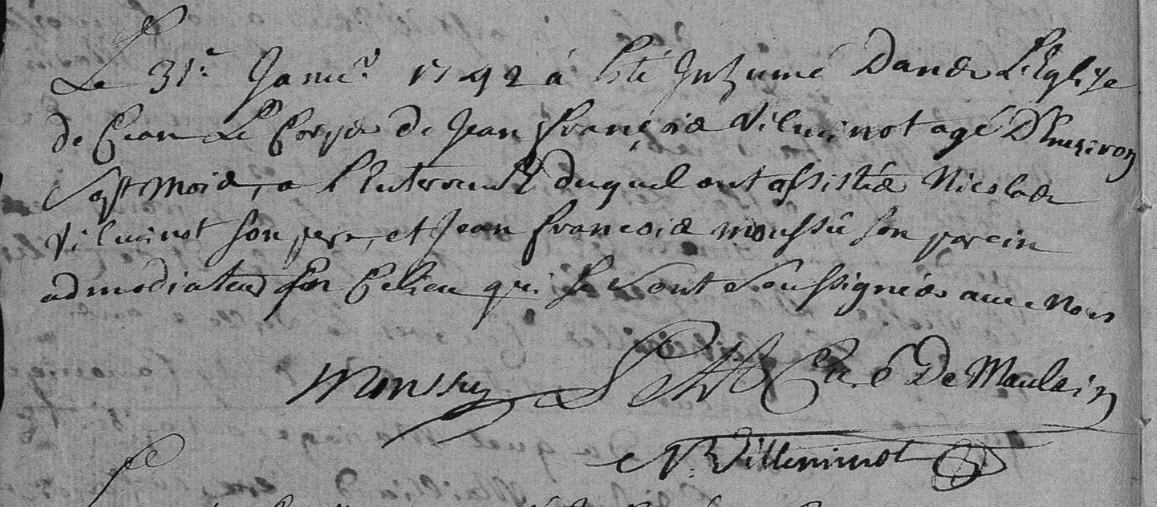 Le 31e Janvr 1742 à Esté Inhumé Dans L'Eglise
de Cean Le Corps de Jean François Vilminot agé D'Enuiron
Sept Mois, a L'Enterrement duquel ont assistés Nicolas
Vilminot son pere, et Jean François moussu son parein
admodiateur En Ce lieu qui se sont soussignés auec Nous
Moussu Petit Curé De Maulain
N Villeminot